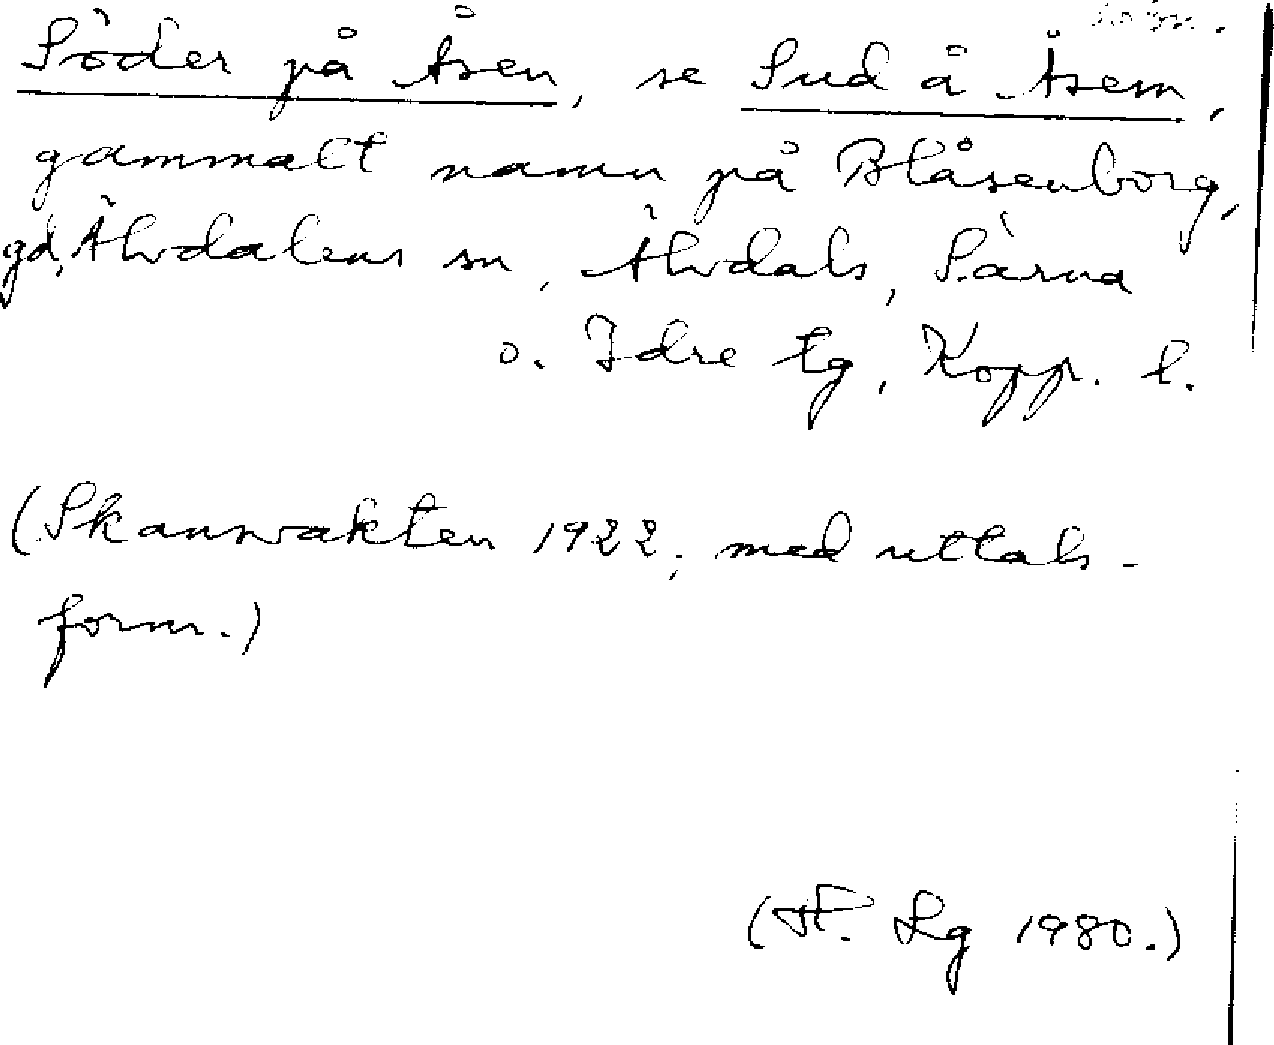 Söder på Åsen, se Sud å Åsem,
gammalt namn på Blåsenborg,
gd, Älvdalens sn, Älvdals, Särna
o. Idre tg, Kopp. l.
(Skansvakten 1922, med uttals-
form.)
(H. Lg 1980.)